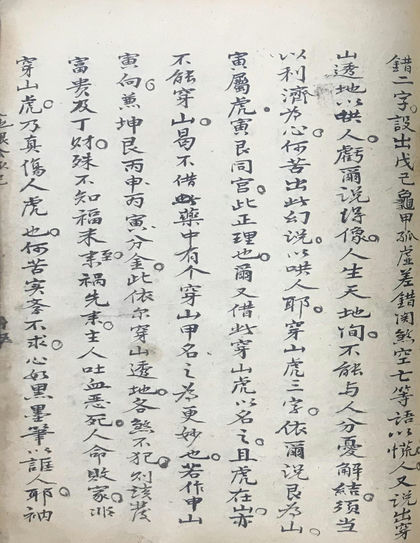 錯二字設出戊己龜甲孤虛差錯関煞空亡等語以慌人又説出穿
山透地以哄人虧爾説得像人生天地間不能与人分憂解結須当
以利濟為心何苦出此幻説以哄人耶穿山虎三字依爾説艮為山
寅屬虎寅艮同宫此正理也爾又借此穿山虎以名之且虎在山亦
不能穿山曷不借此藥中有个穿山甲名之為更妙也若作甲山
寅向兼坤艮丙申丙寅分金此依尔穿山透地各煞不犯則該發
富貴及丁財殊不知福未至禍先来主人吐血惡死人命敗家非
穿山虎乃真傷人虎也何苦实季不求心如黑墨筆以誑人耶衲